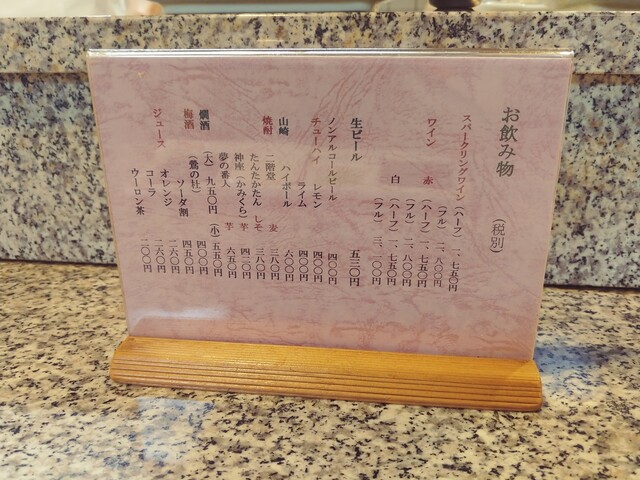 お飲み物 (税別)
スパークリングワイン (ハーフ) 一、七五〇円
(フル) 二、八〇〇円
ワイン 赤 (ハーフ) 一、七五〇円
(フル) 二、八〇〇円
白 (ハーフ) 一、七五〇円
(フル)
生ビール 五三〇円
ノンアルコールビール 四〇〇円
チューハイ レモン 四〇〇円
ライム 四〇〇円
山崎 ハイボール 六〇〇円
焼酎 二階堂 麦 三八〇円
たんたかたん しそ 三八〇円
神座(かみくら) 芋 四二〇円
夢の番人 芋 六五〇円
燗酒 (大) 九五〇円 (小) 五五〇円
梅酒 四〇〇円
ソーダ割 四五〇円
ジュース オレンジ 二六〇円
コーラ 二六〇円
ウーロン茶 二〇〇円